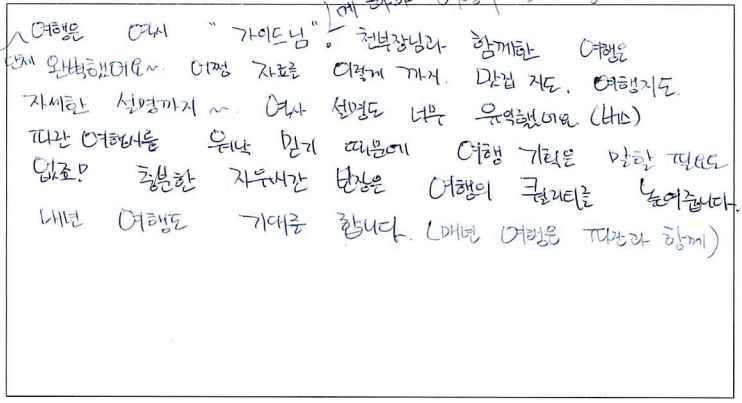 여행은 역시 "가이드님"! 천부장님과 함께한 여행은
단체
완벽했어요~. 어쩜 자료를 이렇게 까지. 맛집 지도, 여행지도.
자세한 설명까지 ~. 역사 설명도 너무 유익했어요 (버스)
따관 여행사를 워낙 믿기 때문에 여행 기획은 말할 필요도
없죠! 충분한 자유시간 보장은 여행의 퀄리티를 높여줍니다.
내년 여행도 기대를 합니다. (매년 여행은 따관과 함께)